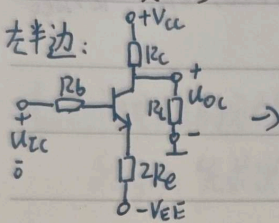 左半边:
+Vcc
Rc
+
Rb
RL
uoc
+
uIc
-
-
2Re
-VEE